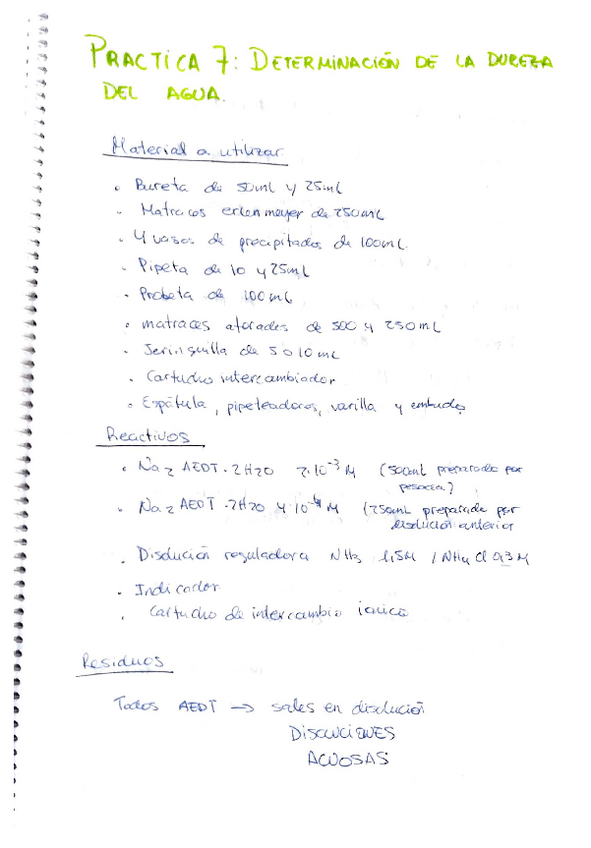 PRACTICA 7: DETERMINACIÓN DE LA DUREZA
DEL AGUA.
Material a utilizar
• Bureta de 50mL y 25mL
• Matraces erlenmeyer de 250mL
• 4 vasos de precipitados de 100mL.
• Pipeta de 10 y 25mL
• Probeta de 100mL
• matraces aforados de 500 y 250mL
• Jeringuilla de 5 o 10mL
• Cartucho intercambiador
• Espátula, pipeteadores, varilla y embudos
Reactivos
• Na2 AEDT·2H2O 2·10⁻³ M (500mL preparada por
pesada)
• Na2 AEDT·2H2O 4·10⁻⁴ M (250mL preparada por
disolución anterior
• Disolución reguladora NH3 1,5M / NH4Cl 0,3M
• Indicador
• Cartucho de intercambio iónico
Residuos
Todos AEDT → sales en disolución
DISOLUCIONES
ACUOSAS